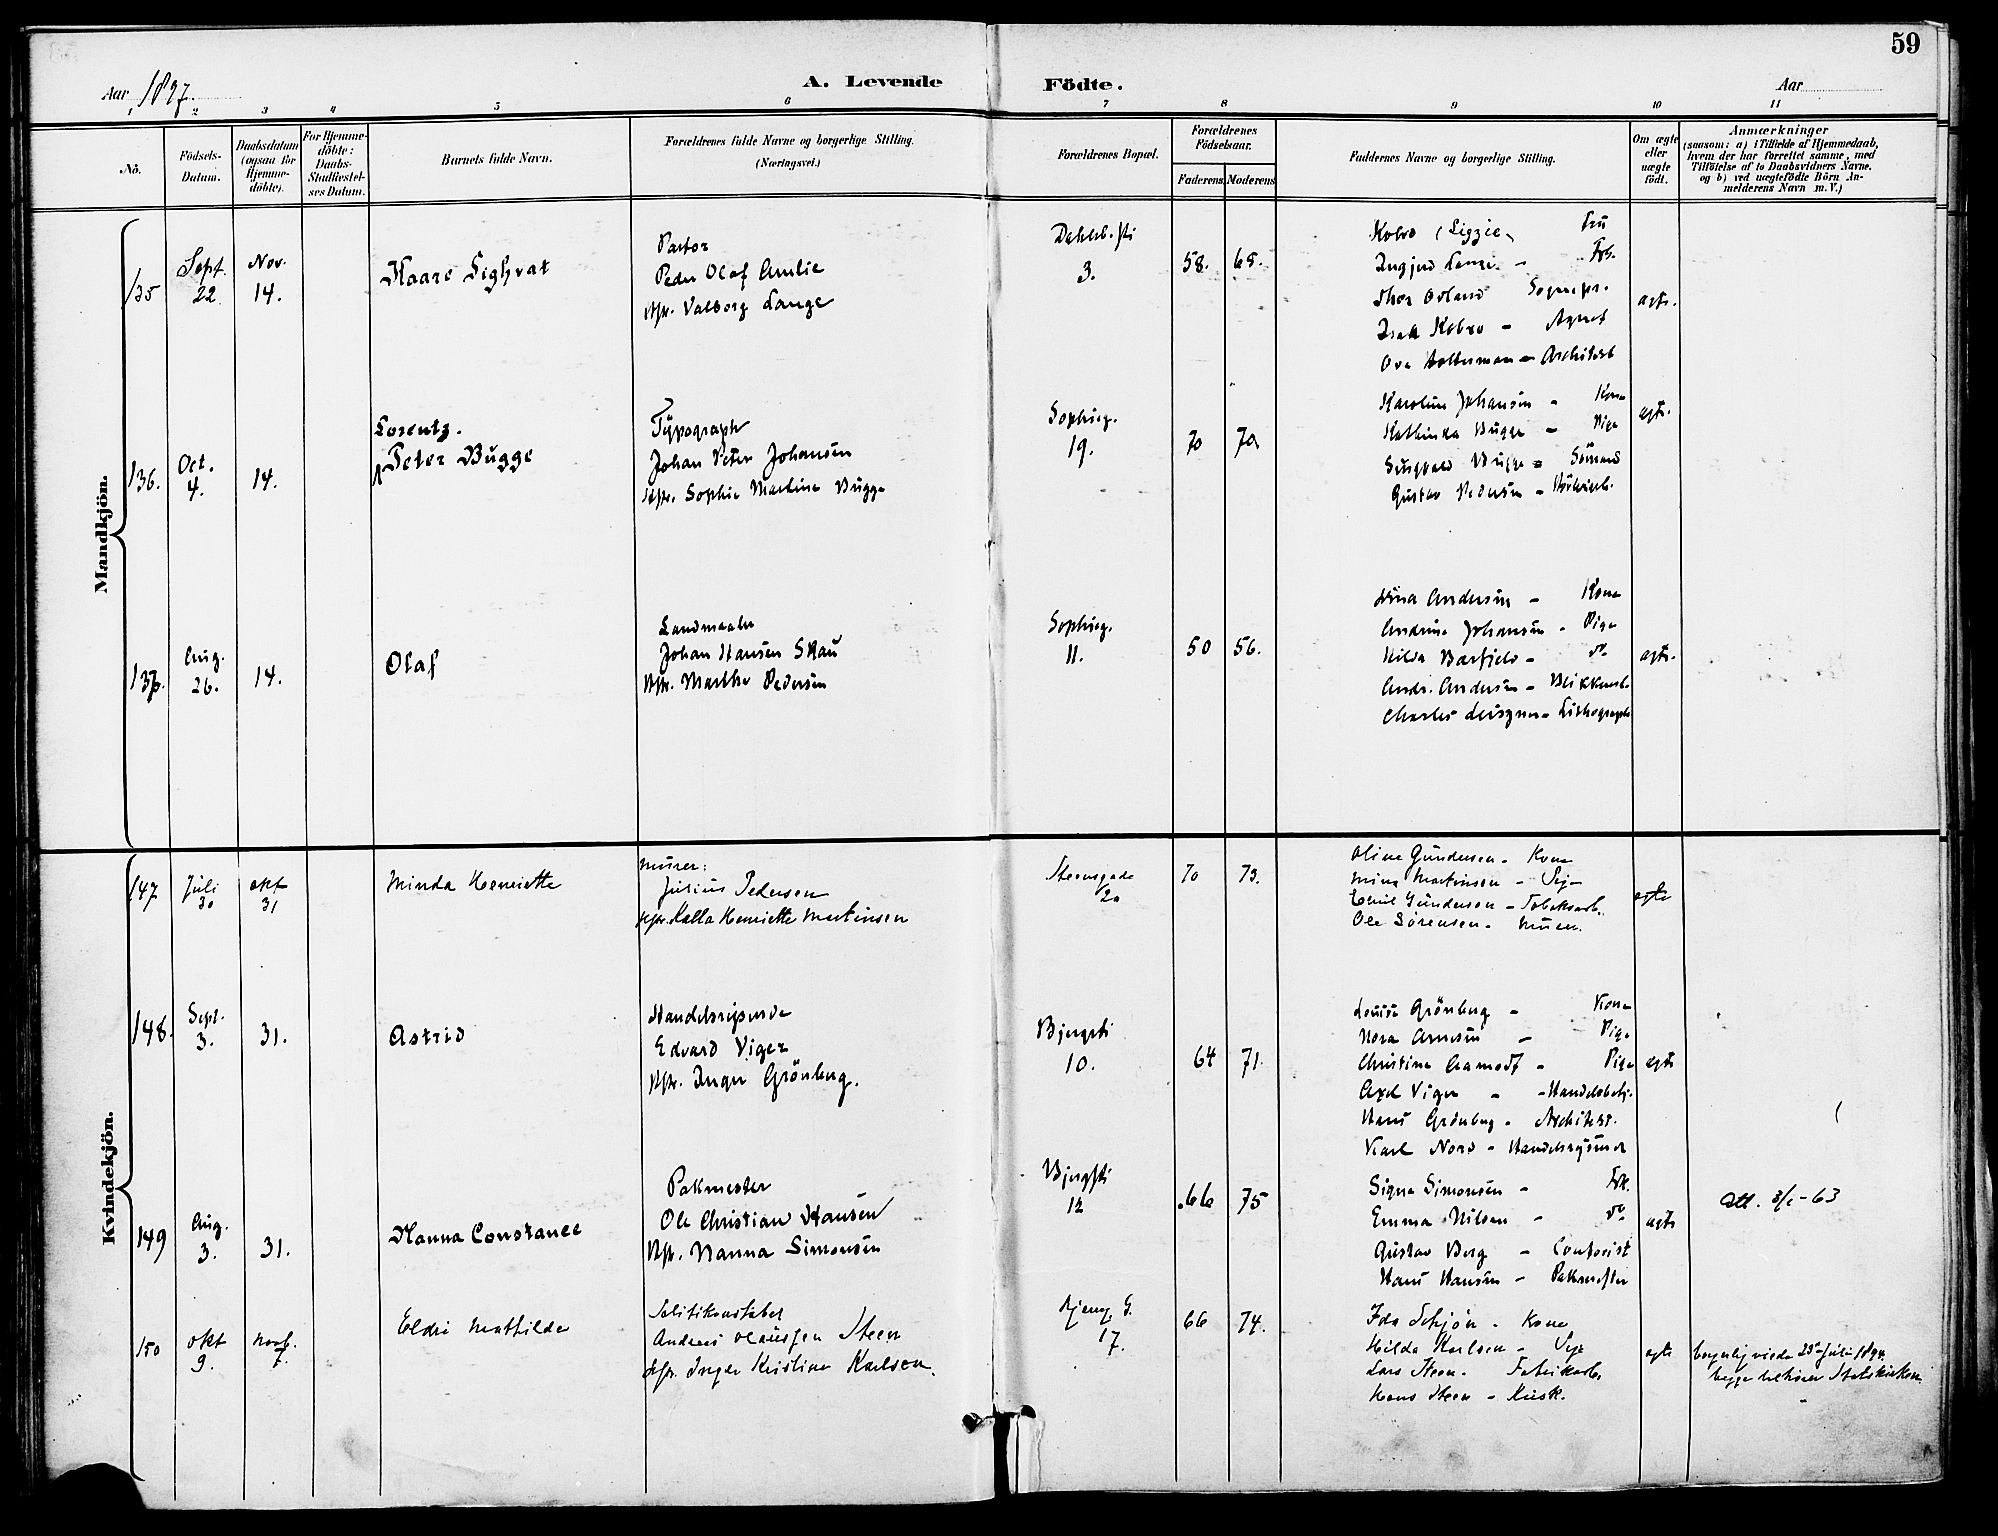 59
Aar 1897. A. Levende Födte. Aar
1 2 3 4 5 6 7 8 9 10 11
No.
Födsels-
Datum.
Daabsdatum
(ogsaa for
Hjemme-
döbte).
For Hjemme-
döbte:
Daabs-
Stadfæstel-
ses Datum.
Barnets fulde Navn.
Forældrenes fulde Navne og borgerlige Stilling.
(Næringsvei.)
Forældrenes Bopæl.
Forældrenes
Födselsaar.
Faderens. Moderens.
Faddernes Navne og borgerlige Stilling.
Om ægte
eller
uægte
födt.
Anmærkninger
(saasom: a) i Tilfælde af Hjemmedaab,
hvem der har forrettet samme, med
Tilföielse af to Daabsvidners Navne.
og b) ved uægtefödte Börn An-
melderens Navn m. V.)
Mandkjön.
135
Sept.
22
Nov.
14.
Kaare Sighvat
Pastor
Peder Olaf Amlie
Hstr. Valborg Lange
3.
58. 68.
Kobro (Lizzie) Fru
Ingjerd Lange - Frk.
Thor Sognepr.
Isak Kobro - Agent
Ove - Architekt
ægte.
136.
Oct.
4.
14.
Lorentz.
Peter Bugge
Typograph
Johan Peter Johansen
Hstr. Sophie Martine Bugge
Sophieg.
19.
70 70
Karoline Johansen - Kone
Kathinka Bugge - Pige
Bugge - Sömand
Gustav Pedersen -
ægte.
137.
Aug.
26.
14.
Olaf
Landmaaler
Johan Hansen Skau
Hstr. Marthe Pedersen
Sophieg.
11.
50 56.
Andersen - Kone
Andrine Johansen - Pige
Hilda - do
Andr. Andersen - Blikkensl.
Charles - Lithograph
ægte.
Kvindekjön.
147
Juli
30
okt
31
Minda Henriette
Murer:
Julius Pedersen
Hstr. Kalla Henriette Martinsen
Steensgade
2a
70 73.
Oline Gundersen - Kone
Mina Martinsen - Pige
Emil Gundersen - Tobaksarb.
Ole Sørensen - Murer.
ægte
148.
Sept.
3.
31.
Astrid
Handelsreisende
Edvard Viger
Hstr. Inger Grönberg.
Bjergsti
10.
64 71.
Louise Grönberg - Kone
Nora Arnesen - Pige
Christine Aamodt - Pige
Axel Viger - Handelsbetj.
Hans Grönberg - Architekt.
Karl Nord - Handelsreisende
ægte
149
Aug.
3.
31.
Hanna Constance
Pakmester
Ole Christian Hansen
Hstr. Nanna Simonsen
Bjergsti
12
66 75
Signe Simonsen - Frk.
Emma Nilsen - do
Gustav Berg - Contorist
Hans Hansen - Pakmester
ægte
Att. 3/1-63
150
okt
9.
novb.
7.
Eldri Mathilde
Politikonstabel
Andreas Olaussen Steen
Hstr. Inger Kristine Karlsen.
17.
66 74.
Ida Schjøn - Kone
Hilda Karlsen - Pige
Lars Steen - Fabrikarb.
Hans Steen - Kusk.
ægte
borgerlig viede 29de Juli 1894.
begge tilhører Statskirken.